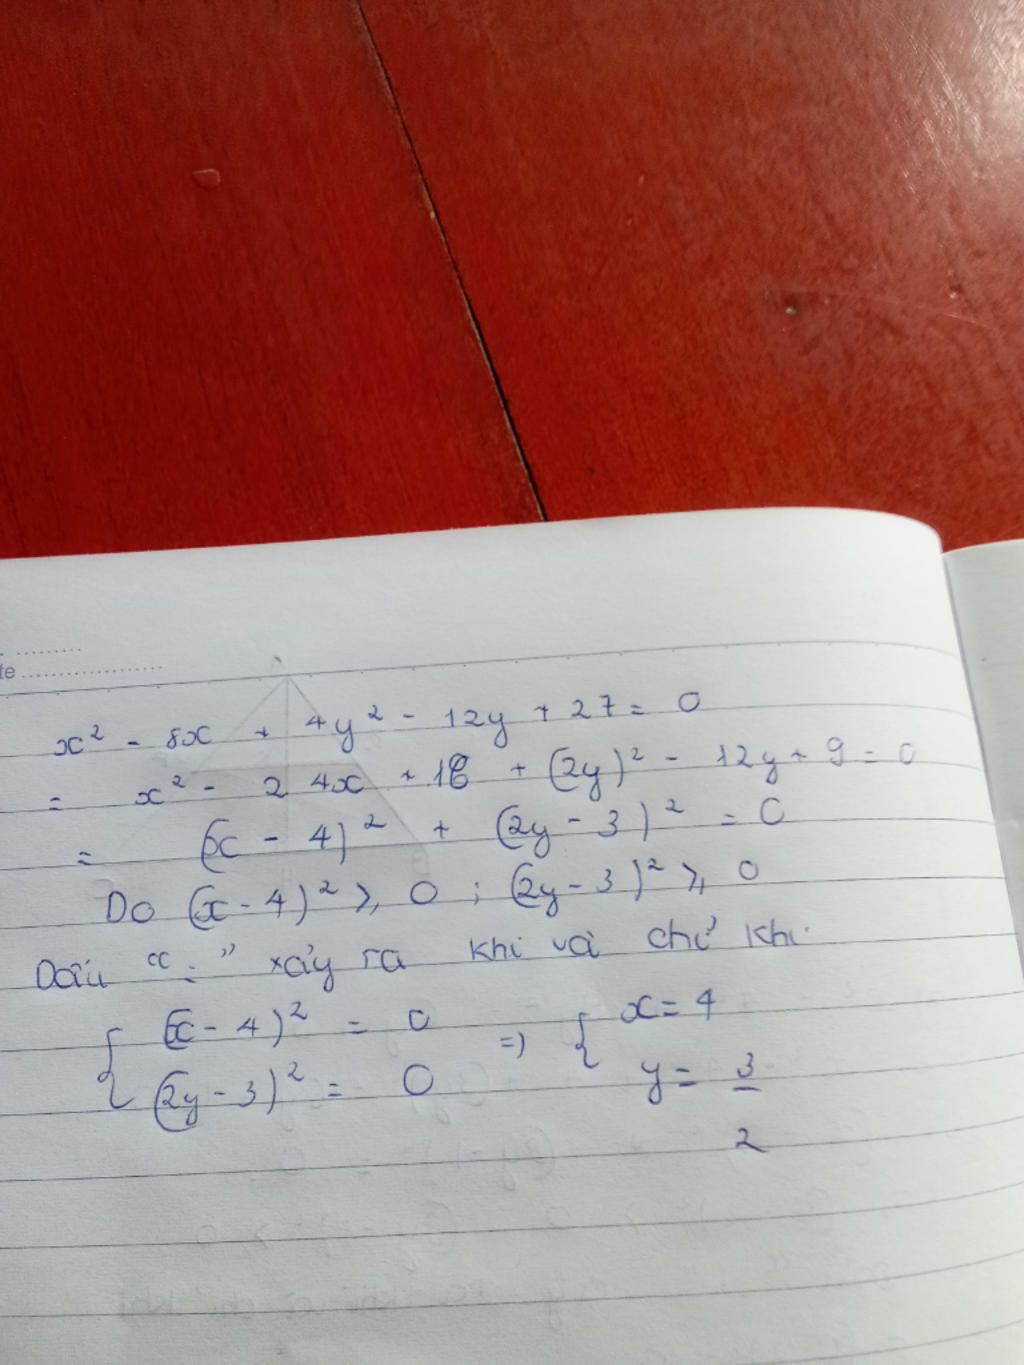 te ..................
x² - 8x + 4y² - 12y + 27 = 0
= x² - 2 4x + 18 + (2y)² - 12y + 9 = 0
= (x - 4)² + (2y - 3)² = 0
Do (x - 4)² ≥ 0 ; (2y - 3)² ≥ 0
Dấu "=" xảy ra khi và chỉ khi
{ (x - 4)² = 0 => { x = 4
(2y - 3)² = 0 y = 3/2